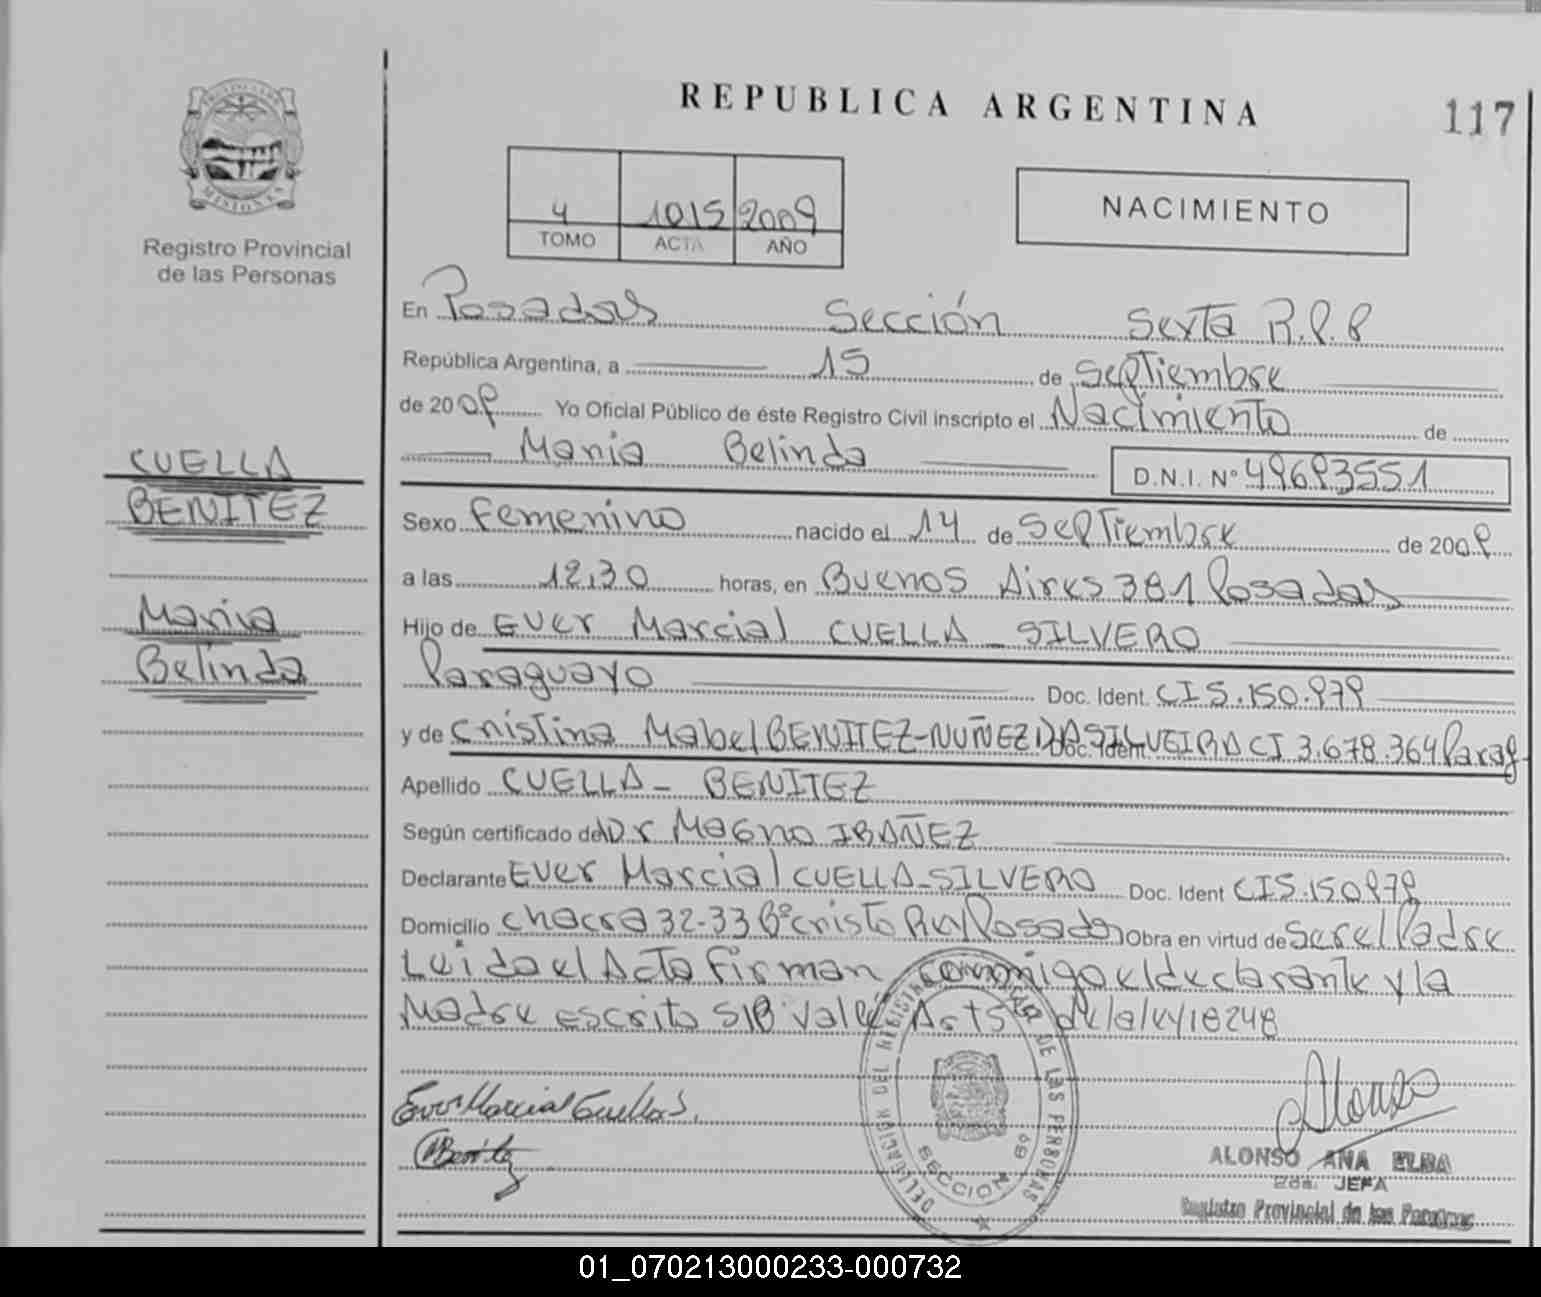 REPUBLICA ARGENTINA
117
MISIONES
Registro Provincial
de las Personas
4 1015 2009
TOMO ACTA AÑO
NACIMIENTO
En Posadas Sección Sexta R.P.P
República Argentina, a 15 de Septiembre
de 2009 Yo Oficial Público de éste Registro Civil inscripto el Nacimiento de
Maria Belinda D.N.I. Nº 49693551
CUELLA
BENITEZ
Maria
Belinda
Sexo Femenino nacido el 14 de Septiembre de 2009
a las 12,30 horas, en Buenos Aires 381 Posadas
Hijo de Ever Marcial CUELLA - SILVERO
Paraguayo Doc. Ident. CI 5.150.979
y de Cristina Mabel BENITEZ-NUÑEZ DA SILVEIRA Doc. Ident. CI 3.678.364 Parag
Apellido CUELLA - BENITEZ
Según certificado de Dr Magno IBAÑEZ
Declarante Ever Marcial CUELLA-SILVERO Doc. Ident CI 5.150979
Domicilio chacra 32-33 Bº Cristo Rey Posadas Obra en virtud de Ser el Padre
Leido el Acta Firman conmigo el declarante y la
Madre escrito S/B Vale Art 5to de la ley 18248
Ever Marcial Cuella S.
MBenitez
DELEGACION DEL REGISTRO DE LAS PERSONAS
SECCION 6º
Alonso
ALONSO ANA ELBA
JEFA
Registro Provincial de las Personas
01_070213000233-000732